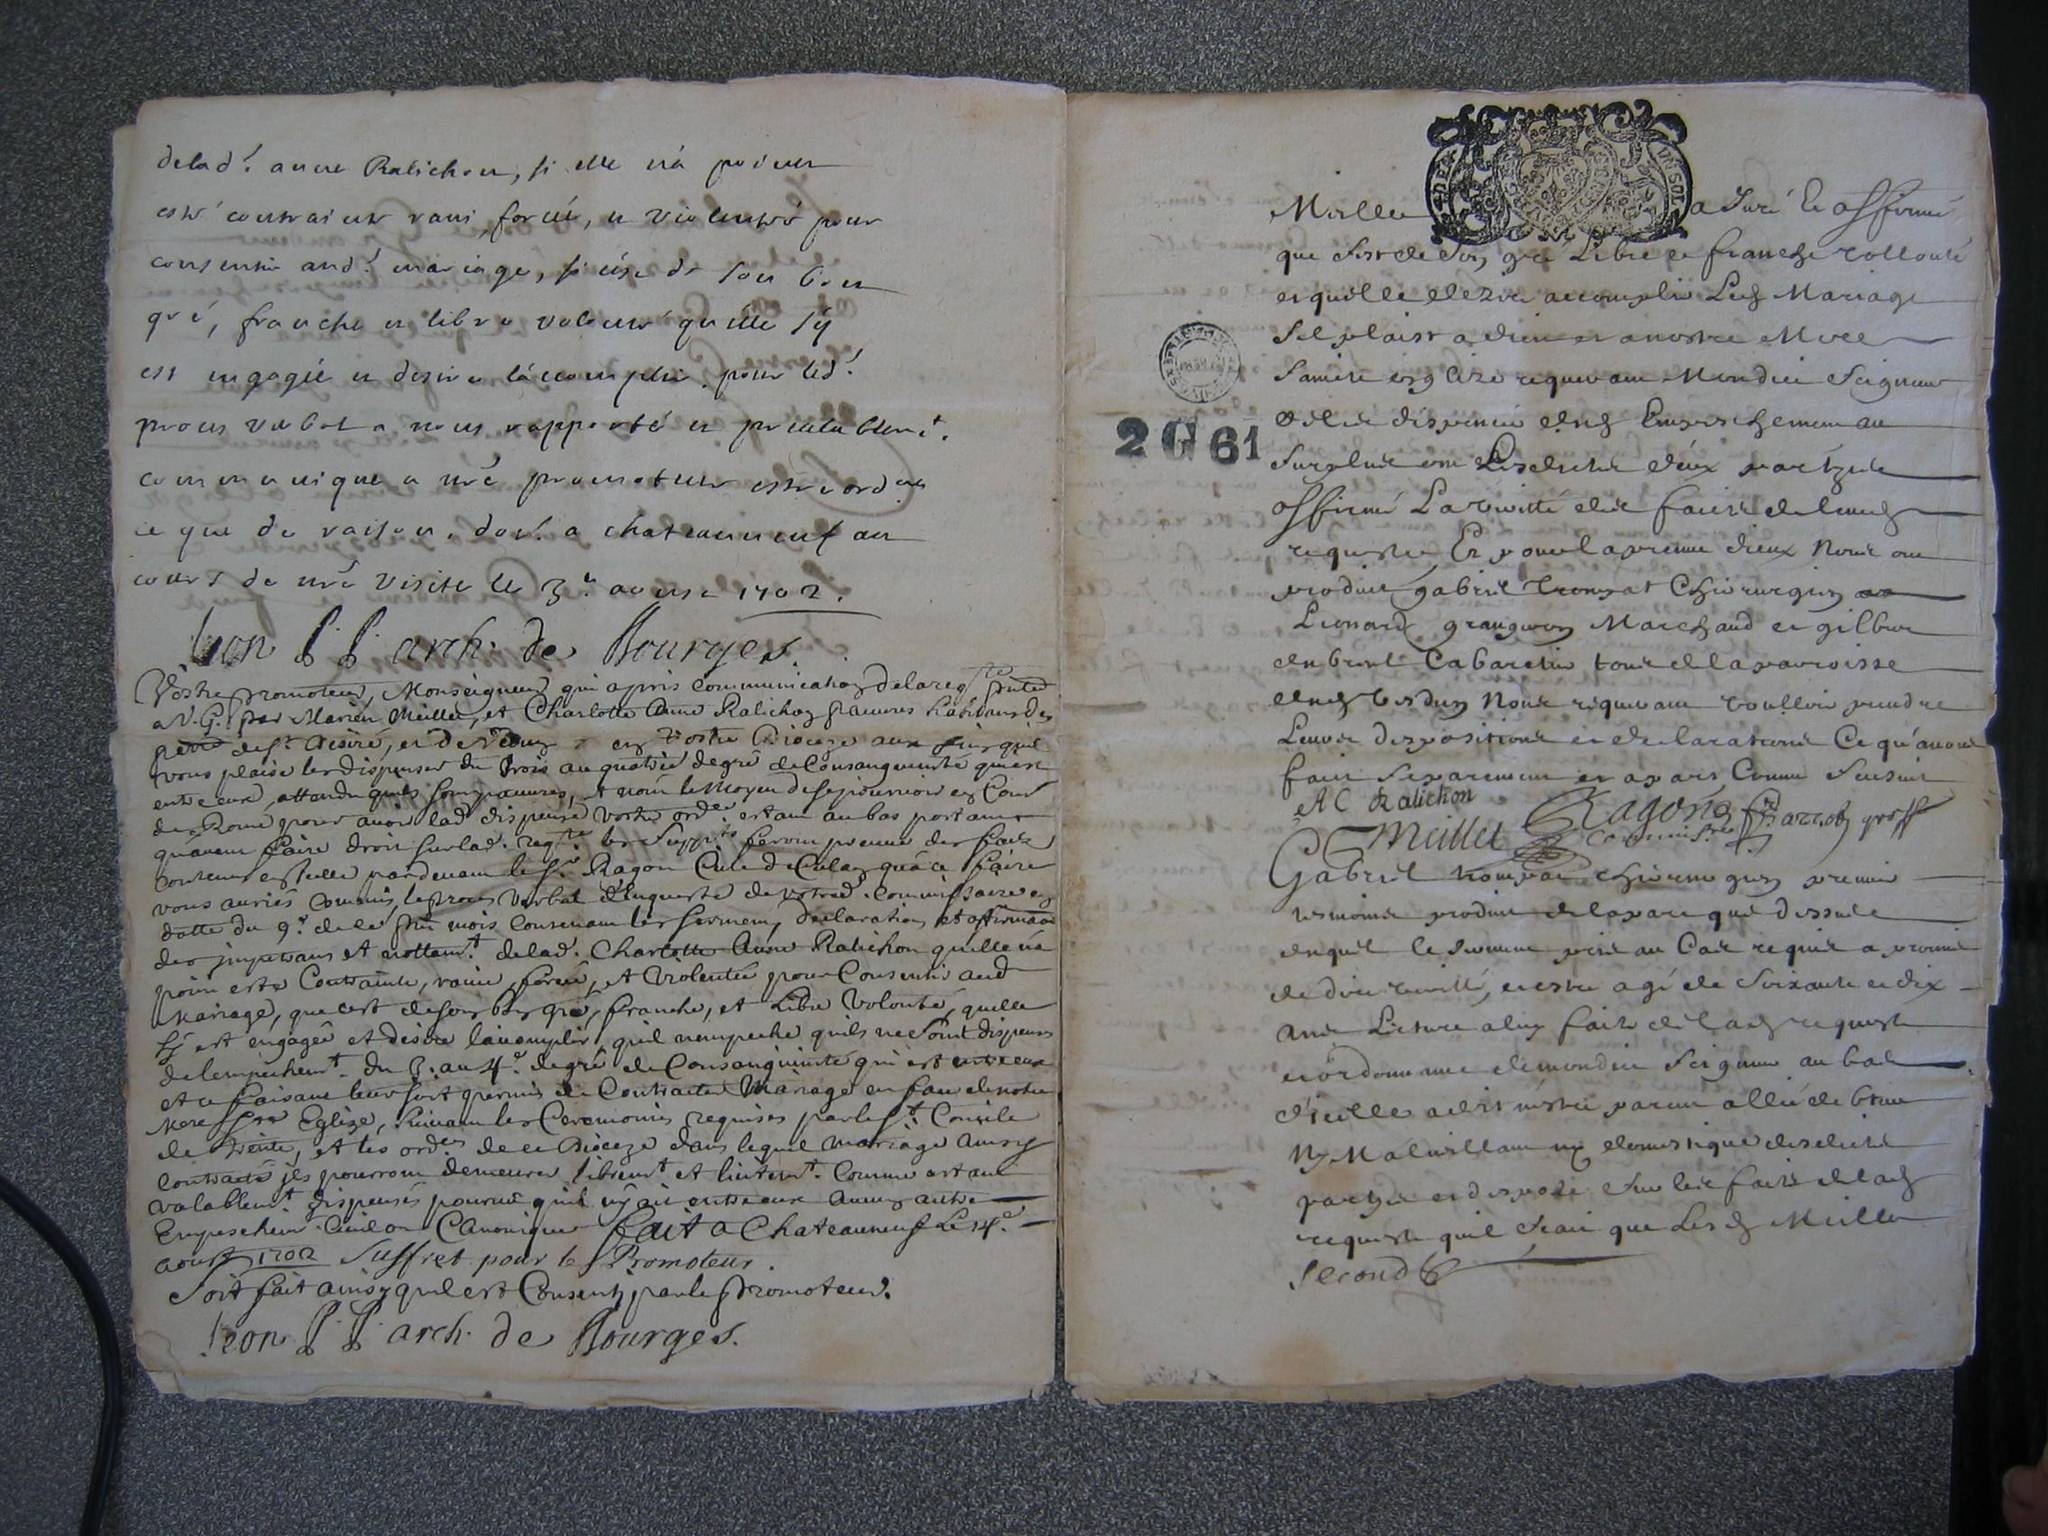 delad.e anne Ralichon, si elle n'a point
esté contrainte ravi, forcée, et violentée pour
consentir aud.t mariage, si c'est de son bon
gré, franche et libre volonté qu'elle s'y
est engagée et desire l'accomplir, pour led.t
proces verbal a nous rapporté et prealablem.t
communiqué a nr̃e promoteur estre ordonné
ce que de raison. donné a chateauneuf au
cours de nr̃e visite le 3.e aoust 1702.
leon P. P. arch. de Bourges.
Vostre promoteur, Monseigneur qui apris communication de la req.te
a V. G. par Marien Meillet, et Charlotte Anne Ralichon pauvres habitans des
de St. desiré, et de Vedun en Vostre Dioceze aux fins quil
vous plaise les dispenser du trois au quatrie degré de Consanguinité qui est
entreeux, attendu quils sont pauvres, et n'ont le moyen de se pourvoir en Cour
de Rome pour avoir lad. dispense vostre ord.e estant au bas portant
qu'avant faire droit sur lad. req.te les supp.ts feront preuve des faits
contenus en icelle pardevant le S.r Ragon Curé de Culan qu'a ce faire
vous auriés Commis, le proces verbal d'Enqueste de vostred. commissaire en
datte du 9.e de ce mois contenant les serment, declaration et affirmation
des impetrans et nottam.t delad. Charlotte Anne Ralichon qu'elle n'a
point esté Contrainte, ravie, forcée, et violentée pour Consentir aud
Mariage, que c'est de son bon gré, franche, et libre volonté, quelle
s'y est engagée et desire l'accomplir, quil n'empeche quils ne soint dispensés
de lempechem.t du 3. au 4.e degré de Consanguinité qui est entreeux
et ce faisant leur soit permis de Contracter Mariage en face de nostre
Mere S.te Eglize, suivant les Ceremonies requises par le S.t Concile
de Trente, et les ord.es de ce Dioceze dans lequel mariage ainsy
contracté ils pourront demeurer librem.t et licitem.t Comme estant
valablem.t dispensés pourvu quil n'y ait entreeux aucun autre
Empeschem.t Civil ou Canonique fait a Chateauneuf Le
aoust 1702 Suffret pour le Promoteur.
Soit fait ainsy quil est Consenty par le promoteur.
leon P. P. arch. de Bourges.
Meillet a Juré et affirmé
que s'est de son gré Libre et franche vollonté
et quelle desire accomplir Led Mariage
Sil plaist a dieu et a nostre Mere
Sainte esglize requerant Mondit Seigneur
de les dispencer dud Empeschement au
surplus ont Lesdites deux partyes
affirmé La verité des faits de leurd
requeste Et pour la preuve dieux Nous ont
produit gabriel trompat Chirurgien
Lionard grangeron Marchand et gilbert
dubreul Cabaretier tous de la parroisse
dud Vesdun Nous requerant voulloir prendre
Leurs depositions et declarations Ce qu'avons
fait separement et a part Comme sensuit
AC Ralichon
Meillet Ragon Commis.re Barrot greff
Gabriel trompat chirurgien premier
tesmoins produit de la part que dessus
duquel le serment pris au Cas requis a promis
de dire verité, et estre agé de soixante et dix
ans Lecture a luy faite de lad requeste
et ordonnance de mondit Seigneur au bas
d'icelle a dit n'estre parant allié
Ny Malveillant ny domestique desdites
partyes et depoze sur les faits de lad
requeste quil scait que Led Meillet
second
2 G 61